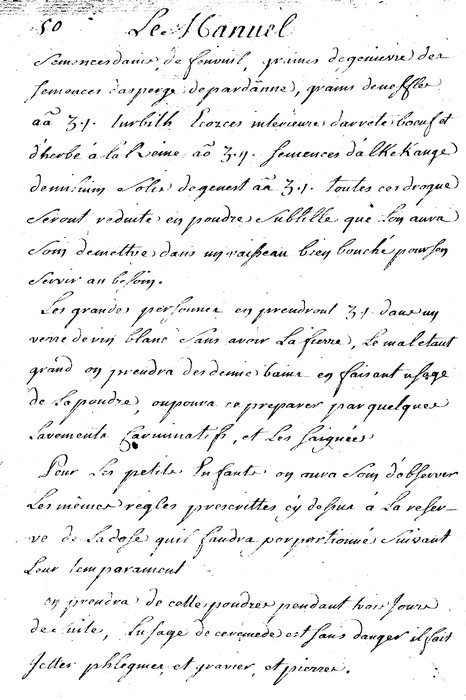 50 Le Manuel
Semences danis, de fenouil, graines de genievre des
semences d'asperge de pardanne, grains de neffles
aã ʒ.j. turbith Ecorces interieure d'arrete boeuf et
d'herbe à la Reine aã ʒ.ij. semences d'alkekange
de milium Solis de genest aã ʒ.j. toutes ces drogue
seront reduite en poudre subtille que lon aura
soin de mettre dans un vaisseau bien bouché pour sen
servir au besoin.
Les grandes personnes en prendront ʒ.j. dans un
verre de vin blanc sans avoir la fievre, Le mal etant
grand on prendra des demie bains en faisant usage
de la poudre, on poura ce preparer par quelques
lavements Carminatifs, et les saignées
Pour les petits Enfants on aura soin d'observer
les mêmes regles prescrittes cy dessus à la reser-
ve de la dose quil faudra porportionné suivant
leur temparament
on prendra de cette poudre pendant trois jours
de suite, Lusage de ce remede est sans danger il fait
jetter phlegmes, et gravier, et pierres.